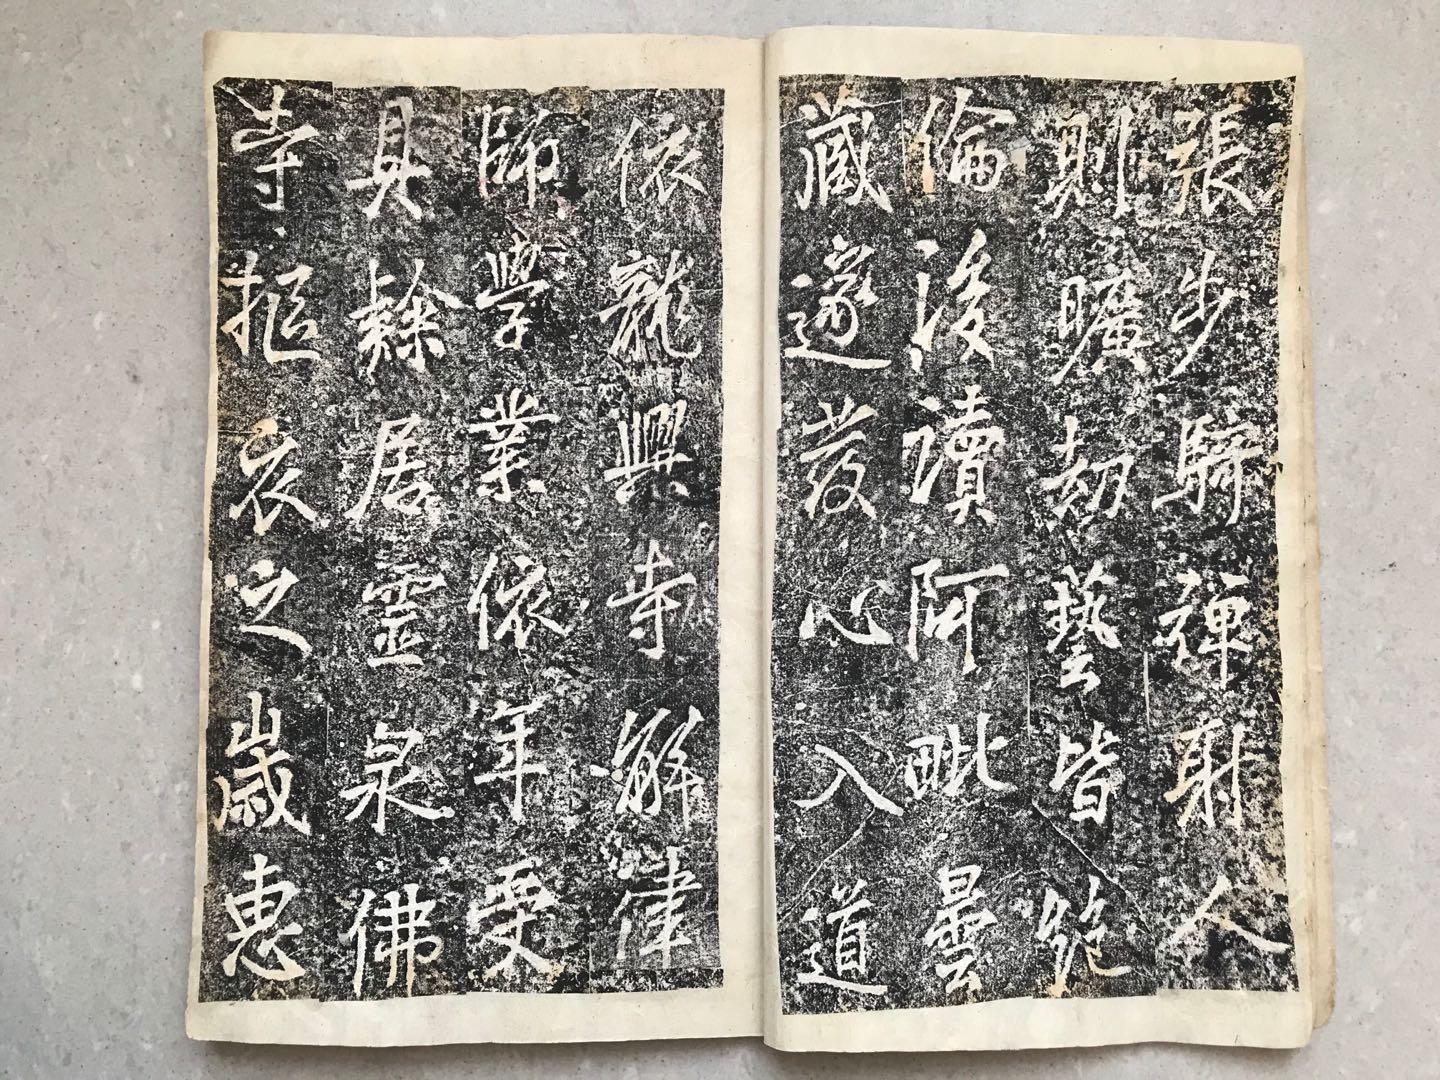 張步騎彈射人
則曠劫藝皆絕
倫後讀阿毗曇
藏遂發心入道
依龍興寺解律
師學業依年受
具隸居靈泉佛
寺摳衣之歲惠